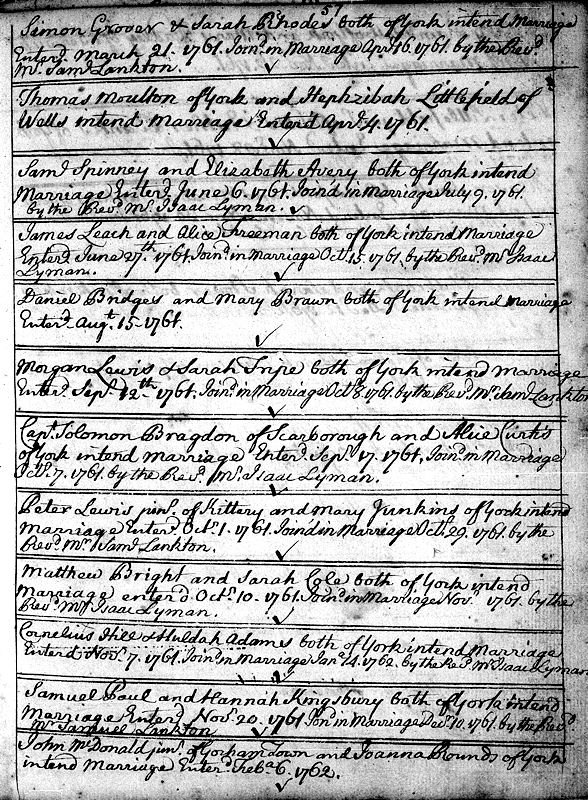 57
Simon Grover & Sarah Rhodes both of York intend Marriage
Enterd March 21. 1761. Join'd in Marriage Apr 16. 1761. by the Revd
Mr. Saml Lankton.
Thomas Moulton of York and Hephzibah Littlefield of
Wells intend Marriage Enter'd Aprl. 4. 1761.
Saml Spinney and Elizabath Avery both of York intend
Marriage Enterd June 6. 1761. Joind in Marriage July 9. 1761
by the Revd. Mr. Isaac Lyman.
James Leach and Alice Freeman both of York intend Marriage
Enterd June 27.th 1761. Joind in Marriage Oct. 15. 1761. by the Revd. Mr. Isaac
Lyman.
Daniel Bridges and Mary Brawn both of York intend Marriage
Enterd. Augt. 15 1761.
Morgan Lewis & Sarah both of York intend Marriage
Enterd. Sepr. 12th 1761. Joind in Marriage Oct. 8. 1761. by the Revd. Mr. Saml. Lankton
Capt. Solomon Bragdon of Scarborough and Alice Curtis
of York intend Marriage Enterd. Sepr. 17. 1761. Join'd in Marriage
Octr. 7. 1761. by the Revd. Mr. Isaac Lyman.
Peter Lewis junr. of Kittery and Mary Junkins of York intend
Marriage Enterd. Octr. 1. 1761. Joind in Marriage Oct. 29. 1761. by the
Revd Mr. Saml Lankton.
Matthew Bright and Sarah Cole both of York intend
Marriage enterd Octr. 10. 1761. Joind in Marriage Nov. 1761. by the
Revd. Mr. Isaac Lyman.
Cornelius Hill & Huldah Adams both of York intend Marriage
Enterd Novr. 7. 1761. Join'd in Marriage Janr 14. 1762. by the Revd. Mr. Isaac Lyman
Samuel Paul and Hannah Kingsbury both of York intend
Marriage Enterd. Novr. 20. 1761 Joind in Marriage Decr. 10. 1761. by the Revd
Mr Samuel Lankton
John McDonald junr. of Gorhamtown and Joanna Rounds of York
intend Marriage Enterd. Feba. 6. 1762.